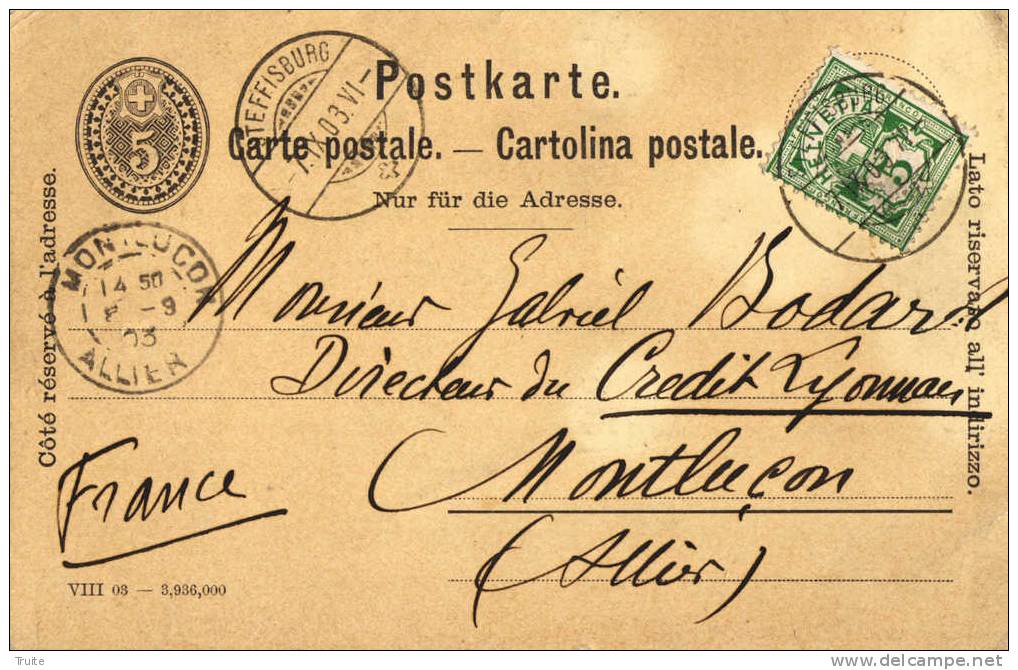 5
STEFFISBURG
-7.IX.03.VI-
Postkarte.
Carte postale. — Cartolina postale.
Nur für die Adresse.
HELVETIA
FRANCO
5
Côté réservé à l'adresse.
Lato riservato all' indirizzo.
MONTLUCON
14 50
8 - 9
03
ALLIER
Monsieur Gabriel Bodard
Directeur du Credit Lyonnais
Montluçon
France
(Allier)
VIII 03 — 3,936,000
Truite
delcampe.net